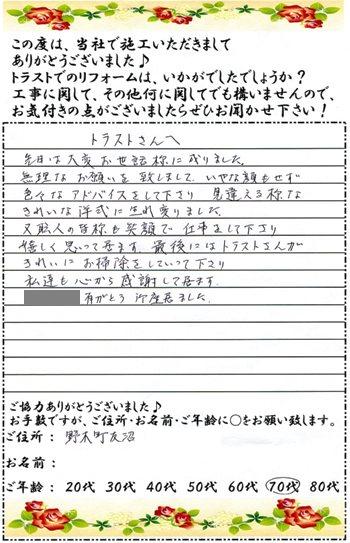 この度は、当社で施工いただきまして
ありがとうございました♪
トラストでのリフォームは、いかがでしたでしょうか？
工事に関して、その他何に関してでも構いませんので、
お気付きの点がございましたらぜひお聞かせ下さい！
トラストさんへ
先日は大変お世話様に成りました。
無理なお願いを致しまして、いやな顔もせず
色々なアドバイスをして下さり 見違える様な
きれいな洋式に生れ変りました。
又職人の皆様も笑顔で仕事をして下さり
嬉しく思って居ます。最後にはトラストさんが
きれいにお掃除をしていって下さり
私達も心から感謝して居ます。
有がとう御座居ました。
ご協力ありがとうございました♪
お手数ですが、ご住所・お名前・ご年齢に○をお願い致します。
ご住所： 野木町友沼
お名前：
ご年齢： 20代 30代 40代 50代 60代 70代 80代